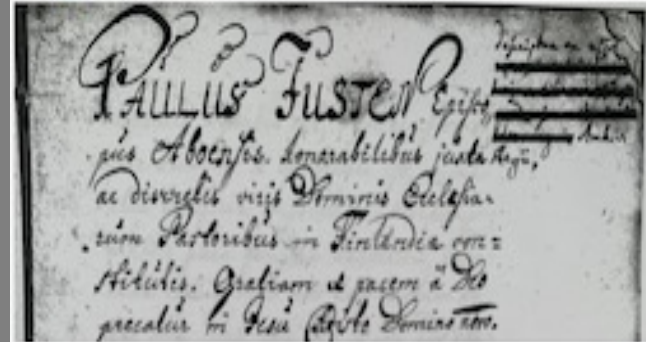 PAULUS JUSTEN Episco
pus Aboensis. honorabilibus
ac discretis viris Dominis Ecclesia-
rum Pastoribus in Finlandia con=
stitutis. Gratiam et pacem à Deo
precatur in Jesu Christo Domino